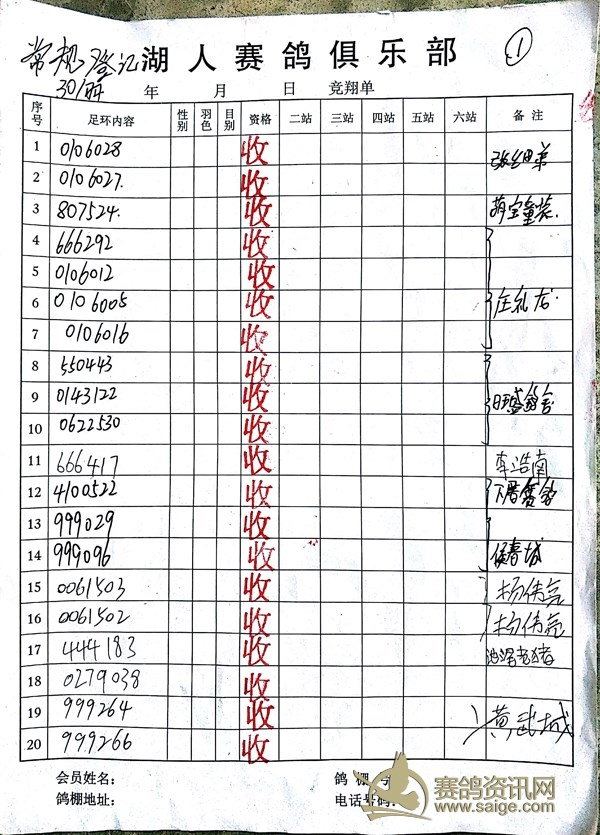 常规登记 湖人赛鸽俱乐部 ①
30/
年 月 日 竞翔单
序号 足环内容 性别 羽色 目别 资格 二站 三站 四站 五站 六站 备注
1 0106028 收
2 0106027. 收
3 807524. 收 萌宝童装.
4 666292 收
5 0106012 收
6 0106005 收 庄礼龙.
7 0106016 收
8 550443 收
9 0143122 收 旺盛鸽舍
10 0622530 收
11 666417 收 李浩南
12 4100522 收
13 999029 收
14 999096 收 侯春城
15 0061503 收 杨伟亮
16 0061502 收 杨伟亮
17 444183 收
18 0279038 收
19 999264 收 黄武城
20 999266 收
会员姓名: 鸽棚
鸽棚地址: 电话号码:
赛鸽资讯网
www.saige.com